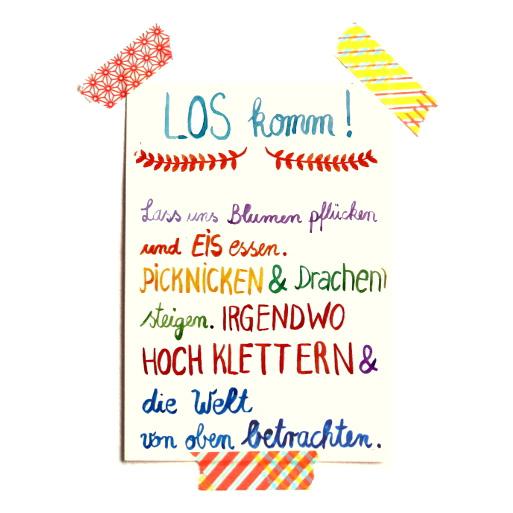 LOS komm!
Lass uns Blumen pflücken
und EiS essen.
PiCKNiCKEN & Drachen
steigen. IRGENDWO
HOCH KLETTERN &
die Welt
von oben betrachten.